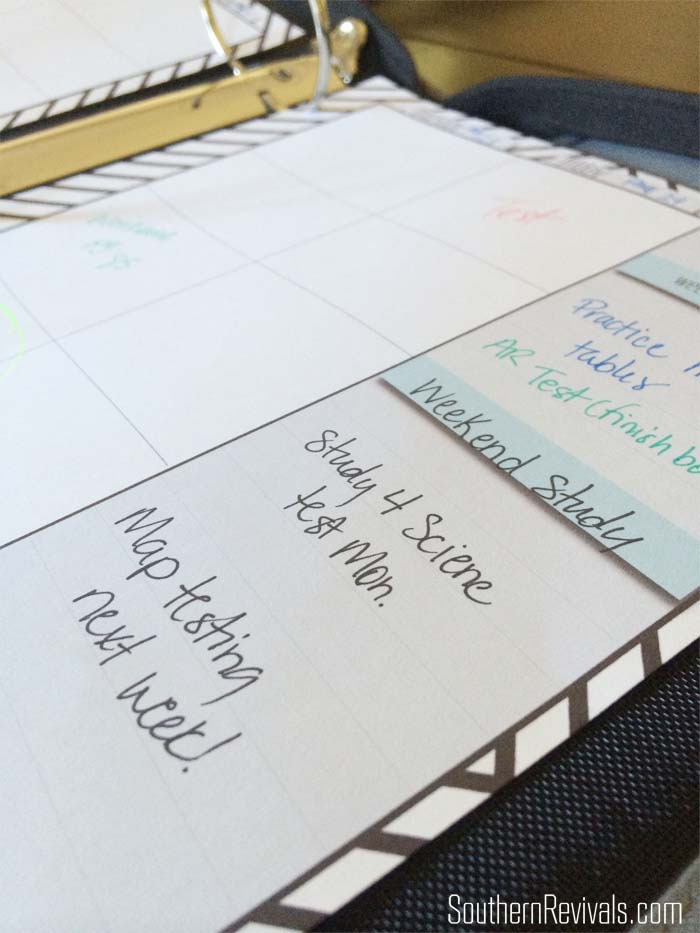 Test
Practice
tables
AR Test (finish
Weekend Study
Study 4 Sciene
test Mon.
Map testing
next week!
SouthernRevivals.com